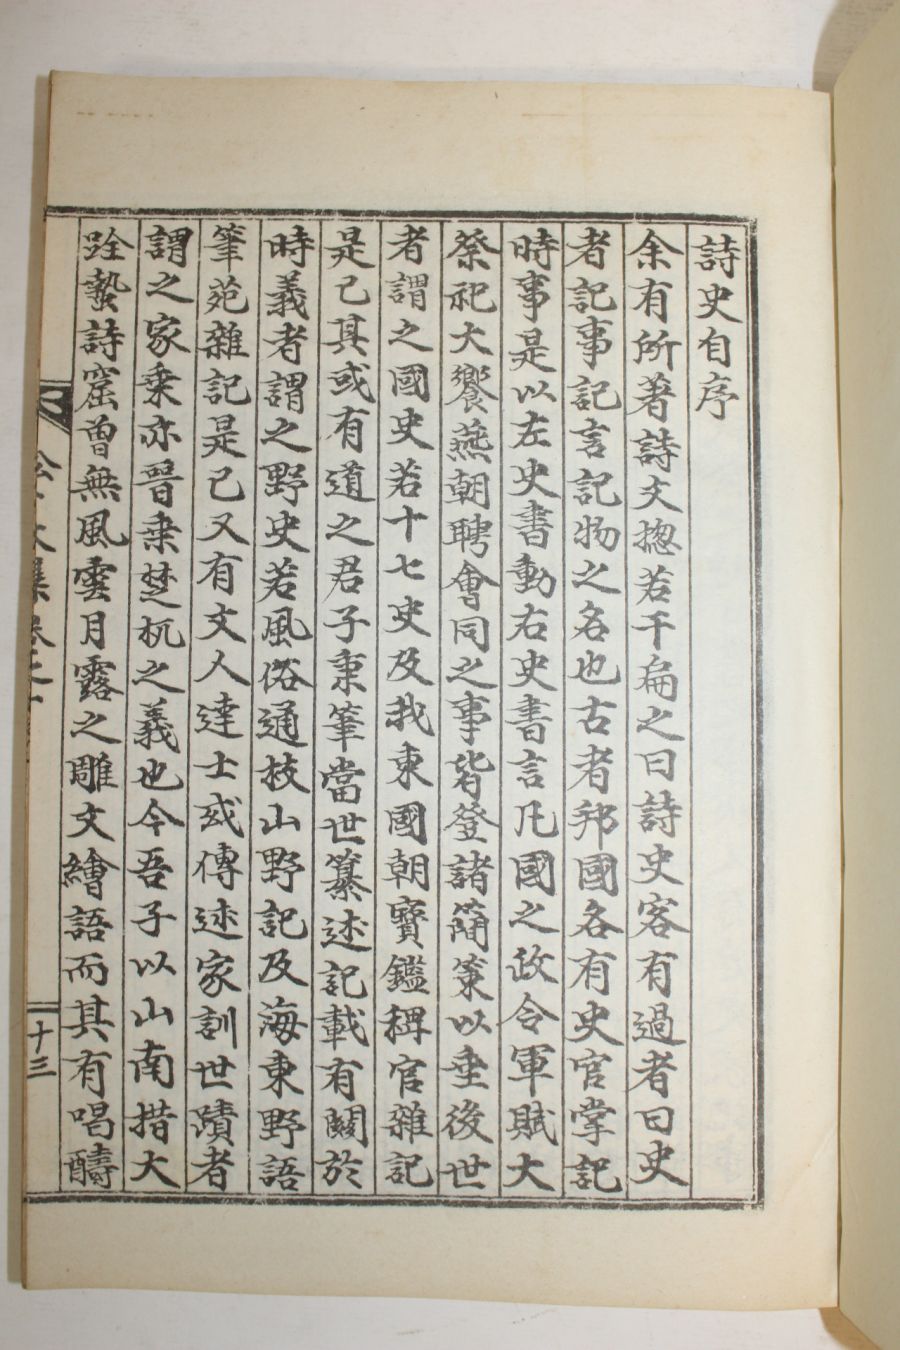 詩史自序
余有所著詩文揔若干扁之曰詩史客有過者曰史
者記事記言記物之名也古者邦國各有史官掌記
時事是以左史書動右史書言凡國之政令軍賦大
祭祀大饗燕朝聘會同之事皆登諸簡策以垂後世
者謂之國史若十七史及我東國朝寶鑑稗官雜記
是已其或有道之君子秉筆當世纂述記載有關於
時義者謂之野史若風俗通技山野記及海東野語
筆苑雜記是已又有文人達士或傳述家訓世蹟者
謂之家乘亦晉乘楚杌之義也今吾子以山南措大
跧蟄詩窟曾無風雲月露之雕文繪語而其有唱酬
文集卷之十
十三